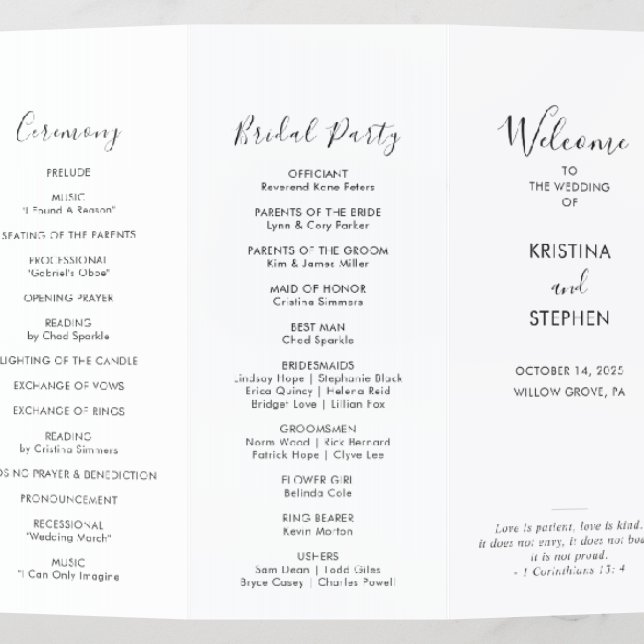 Ceremony
PRELUDE
MUSIC
"I Found A Reason"
SEATING OF THE PARENTS
PROCESSIONAL
"Gabriel's Oboe"
OPENING PRAYER
READING
by Chad Sparkle
LIGHTING OF THE CANDLE
EXCHANGE OF VOWS
EXCHANGE OF RINGS
READING
by Cristina Simmers
PRAYER & BENEDICTION
PRONOUNCEMENT
RECESSIONAL
"Wedding March"
MUSIC
"I Can Only Imagine
Bridal Party
OFFICIANT
Reverend Kane Peters
PARENTS OF THE BRIDE
Lynn & Cory Parker
PARENTS OF THE GROOM
Kim & James Miller
MAID OF HONOR
Cristina Simmers
BEST MAN
Chad Sparkle
BRIDESMAIDS
Lindsay Hope | Stephanie Black
Erica Quincy | Helena Reid
Bridget Love | Lillian Fox
GROOMSMEN
Norm Wood | Rick Bernard
Patrick Hope | Clyve Lee
FLOWER GIRL
Belinda Cole
RING BEARER
Kevin Morton
USHERS
Sam Dean | Todd Giles
Bryce Casey | Charles Powell
Welcome
TO
THE WEDDING
OF
KRISTINA
and
STEPHEN
OCTOBER 14, 2025
WILLOW GROVE, PA
Love is patient, love is kind.
it does not envy, it does not
it is not proud.
- 1 Corinthians 13: 4